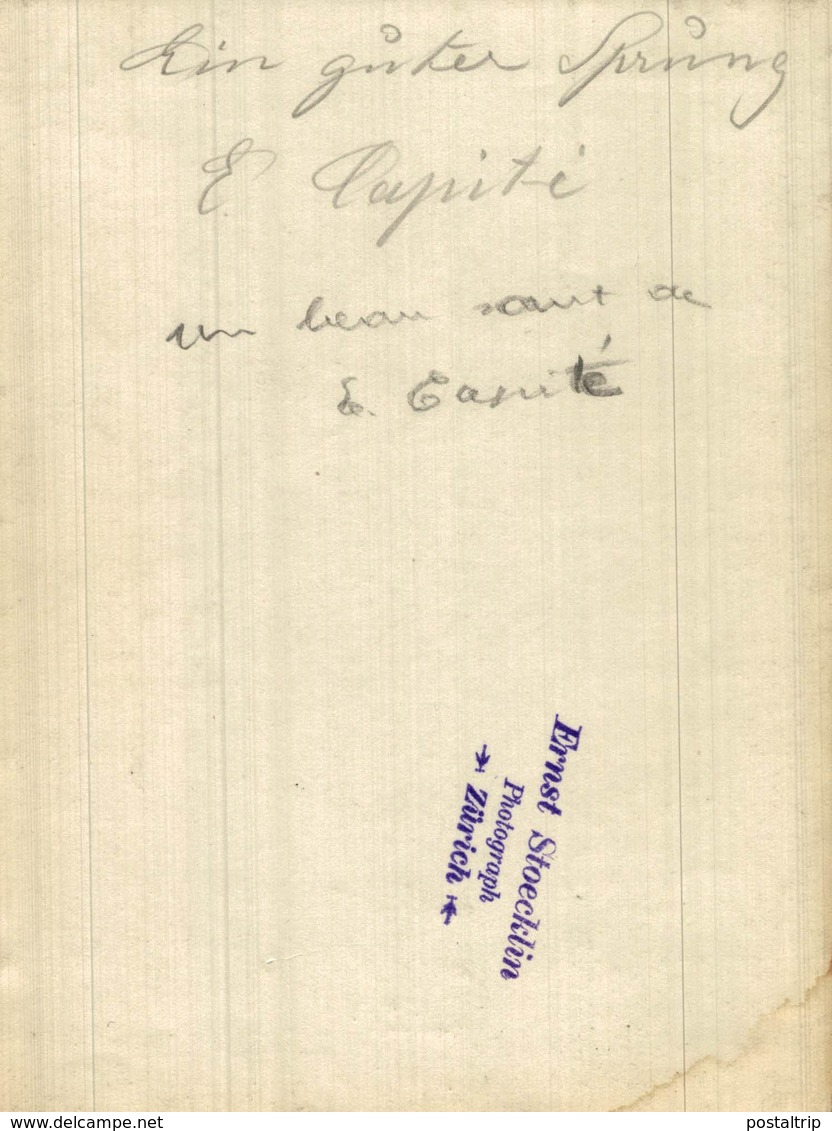 Ein guter Sprung
E Capité
un beau saut de
E. Capité
Ernst Stoecklin
Photograph
Zürich
delcampe.net
postaltrip